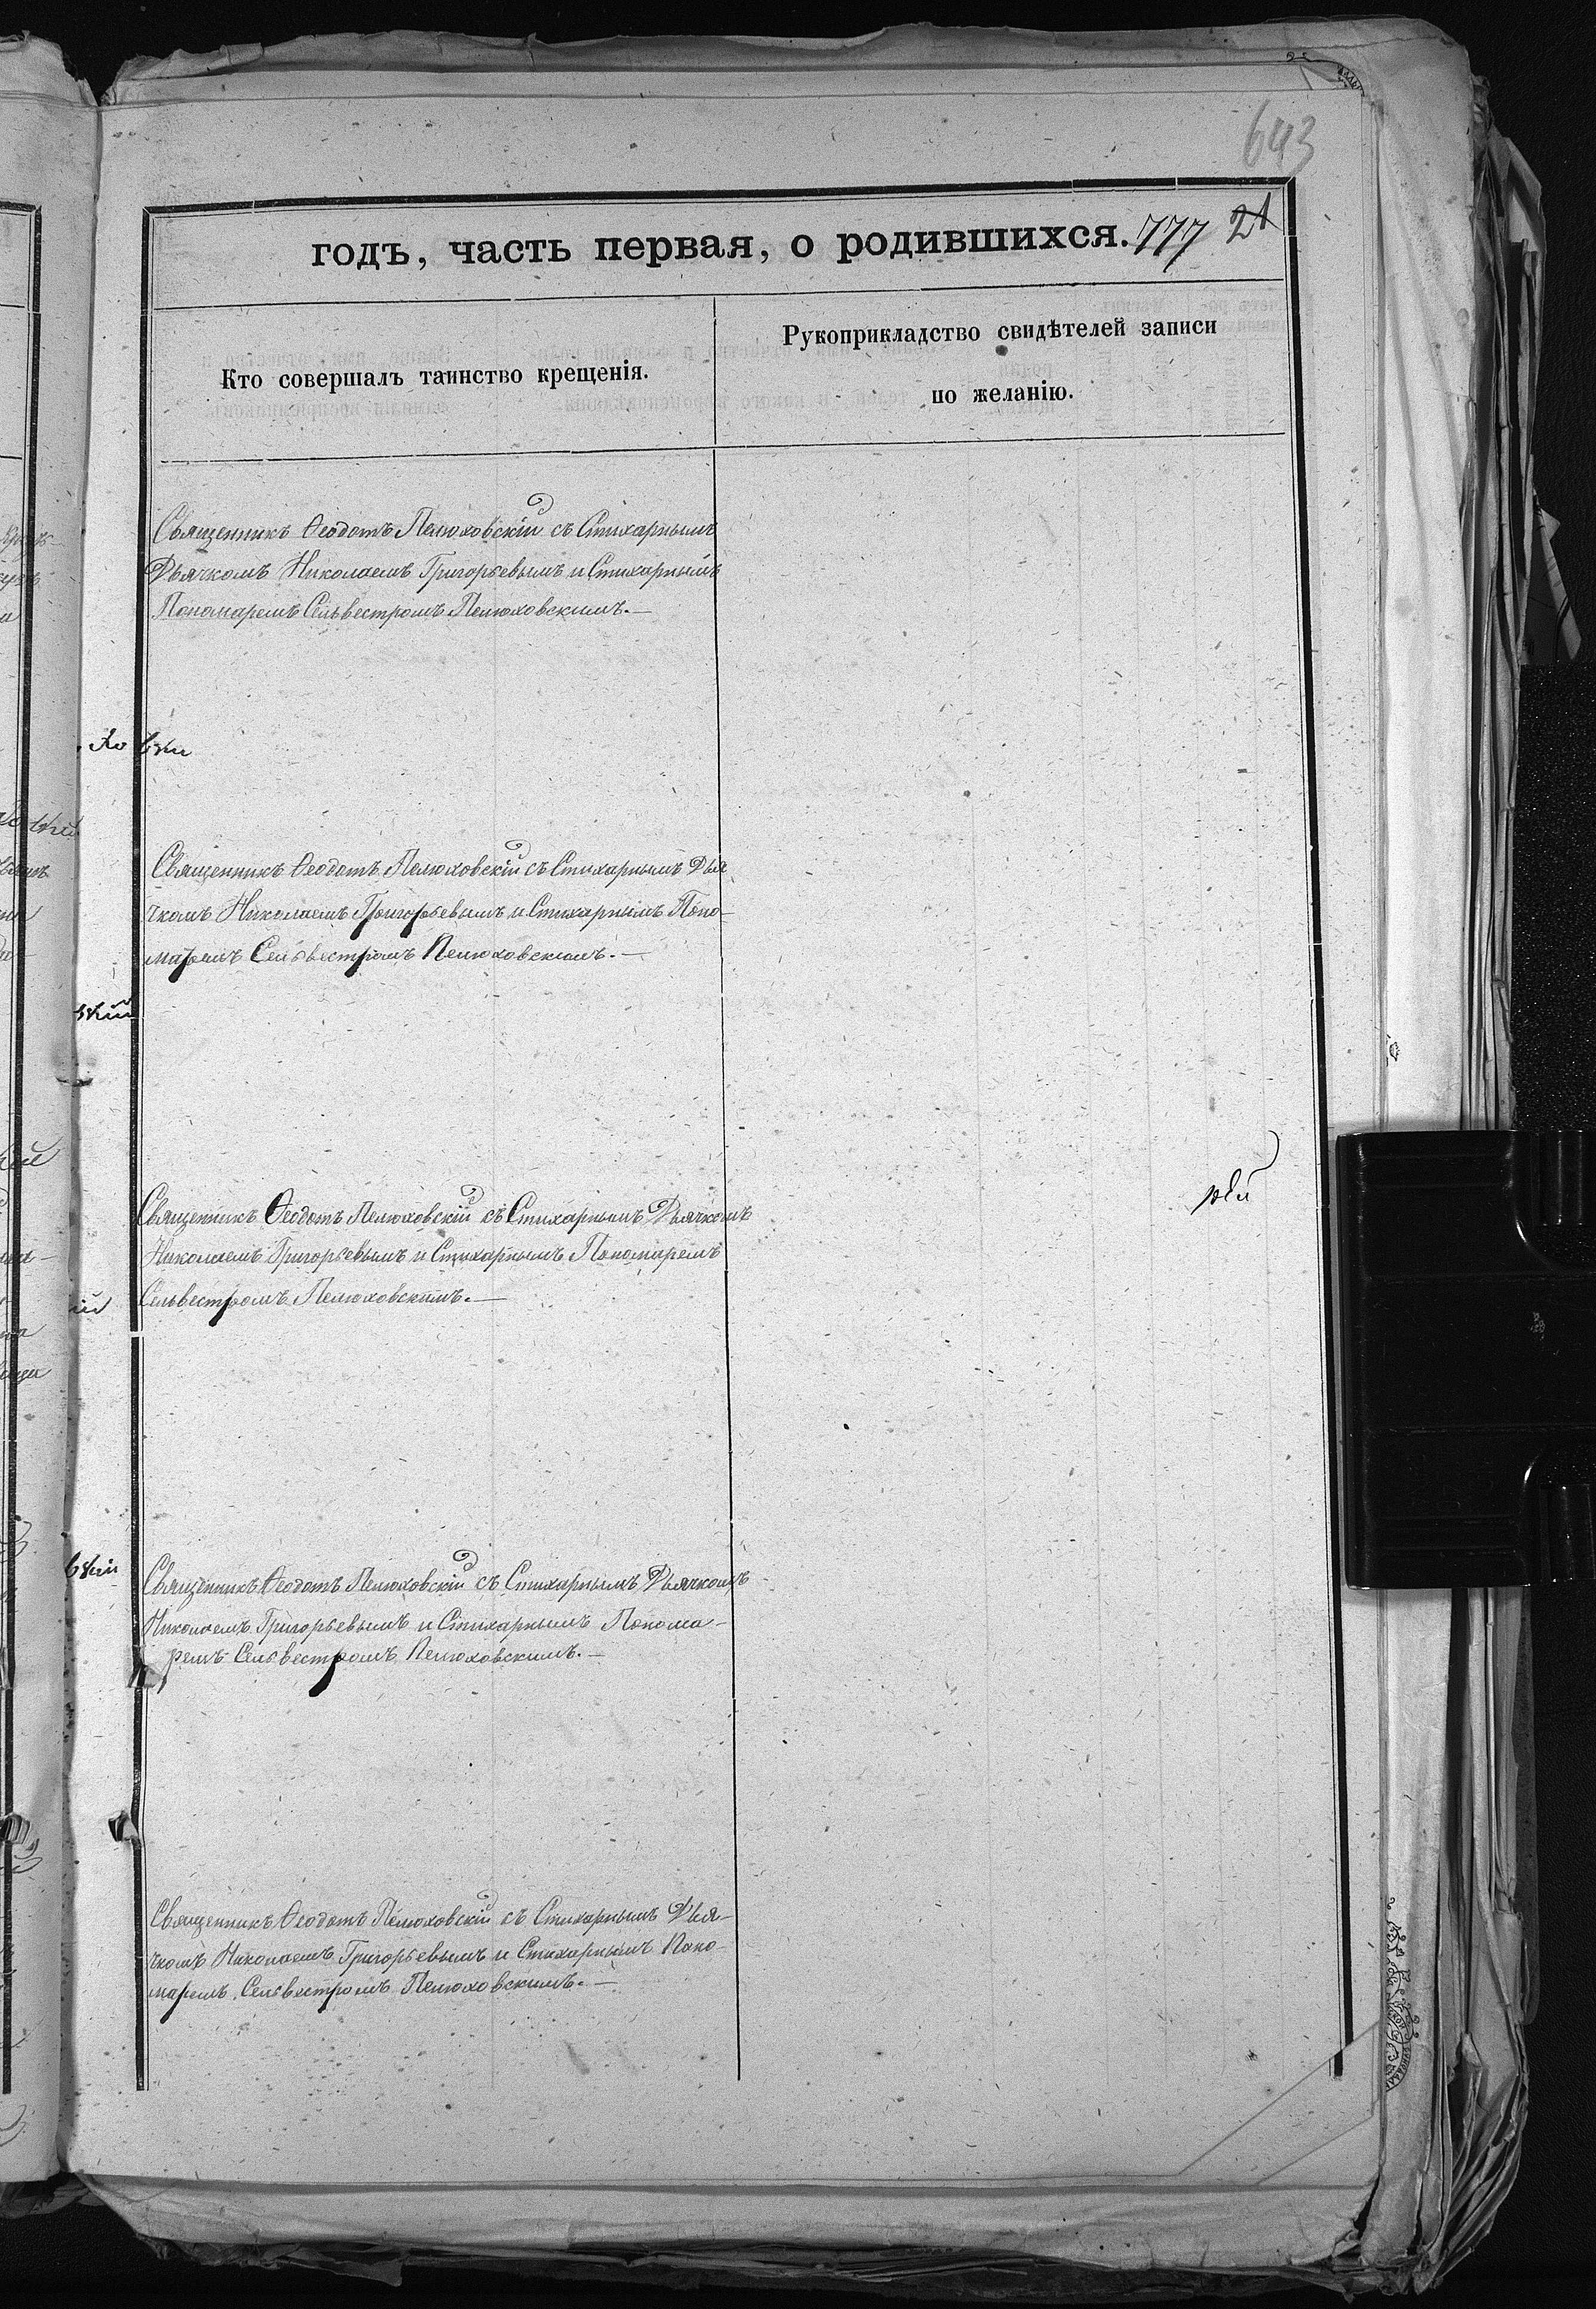 643
годъ, часть первая, о родившихся. 777 21
Кто совершалъ таинство крещенія.
Рукоприкладство свидѣтелей записи
по желанію.
Священникъ Ѳеодотъ Пелюховскій съ Стихарнымъ
Дьячкомъ Николаемъ Григорьевымъ и Стихарнымъ
Пономаремъ Сельвестромъ Пелюховскимъ.—
Священникъ Ѳеодотъ Пелюховскій съ Стихарнымъ Дья
чкомъ Николаемъ Григорьевымъ и Стихарнымъ Поно-
маремъ Сельвестромъ Пелюховскимъ.—
Священникъ Ѳеодотъ Пелюховскій съ Стихарнымъ Дьячкомъ
Николаемъ Григорьевымъ и Стихарнымъ Пономаремъ
Сельвестромъ Пелюховскимъ.—
Священникъ Ѳеодотъ Пелюховскій съ Стихарнымъ Дьячкомъ
Николаемъ Григорьевымъ и Стихарнымъ Понома-
ремъ Сельвестромъ Пелюховскимъ.—
Священникъ Ѳеодотъ Пелюховскій съ Стихарнымъ Дья-
чкомъ Николаемъ Григорьевымъ и Стихарнымъ Поно-
маремъ Сельвестромъ Пелюховскимъ.—